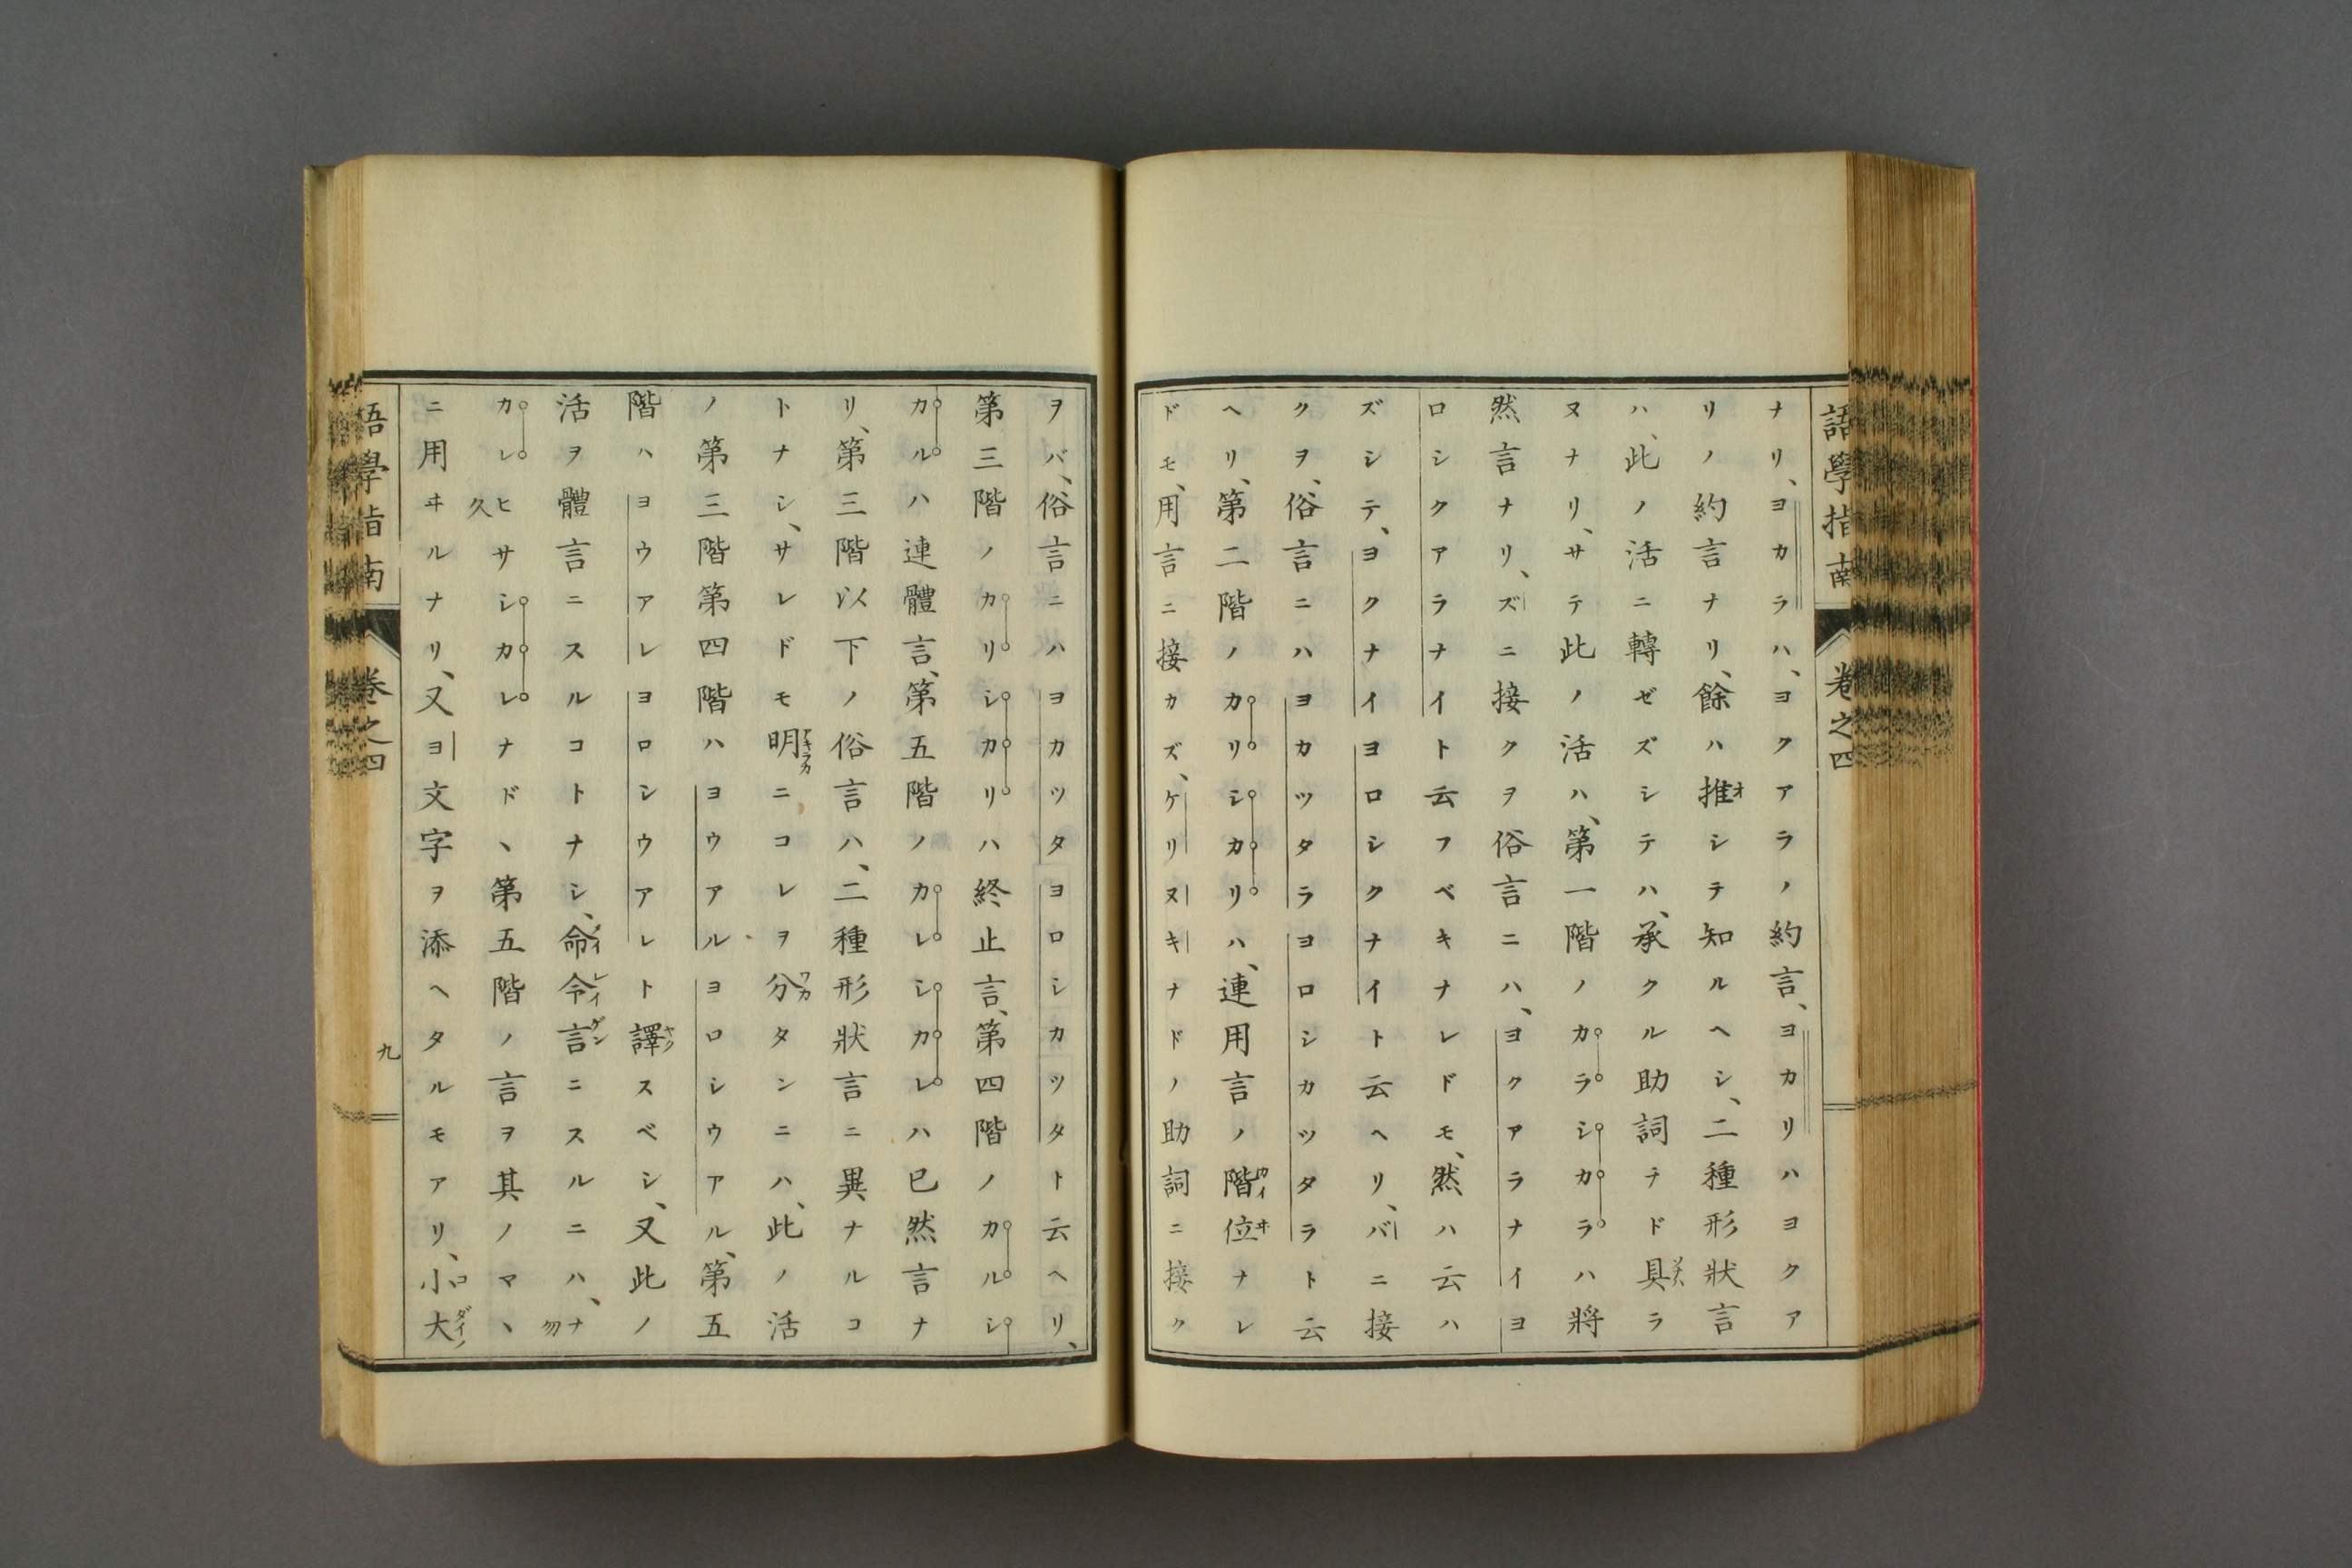 語學指南 卷之四
ナリ、ヨカラハ、ヨクアラノ約言、ヨカリハヨクア
リノ約言ナリ、餘ハ推シテ知ルヘシ、二種形狀言
ハ、此ノ活ニ轉ゼズシテハ、承クル助詞チド具ラ
ヌナリ、サテ此ノ活ハ、第一階ノカラシカラハ將
然言ナリ、ズニ接クヲ俗言ニハ、ヨクアラナイヨ
ロシクアラナイト云フベキナレドモ、然ハ云ハ
ズシテ、ヨクナイヨロシクナイト云ヘリ、バニ接
クヲ、俗言ニハヨカツタラヨロシカツタラト云
ヘリ、第二階ノカリシカリハ、連用言ノ階位ナレ
ドモ、用言ニ接カズ、ケリヌキナドノ助詞ニ接ク
ヲバ、俗言ニハヨカツタヨロシカツタト云ヘリ、
第三階ノカリシカリハ終止言、第四階ノカルシ
カルハ連體言、第五階ノカレシカレハ已然言ナ
リ、第三階以下ノ俗言ハ、二種形狀言ニ異ナルコ
トナシ、サレドモ明ニコレヲ分タンニハ、此ノ活
ノ第三階第四階ハヨウアルヨロシウアル、第五
階ハヨウアレヨロシウアレト譯スベシ、又此ノ
活ヲ體言ニスルコトナシ、命令言ニスルニハ、ナ勿
カレヒサ久シカレナドヽ第五階ノ言ヲ其ノマヽ
ニ用ヰルナリ、又ヨ文字ヲ添ヘタルモアリ、小大
語學指南 卷之四 九